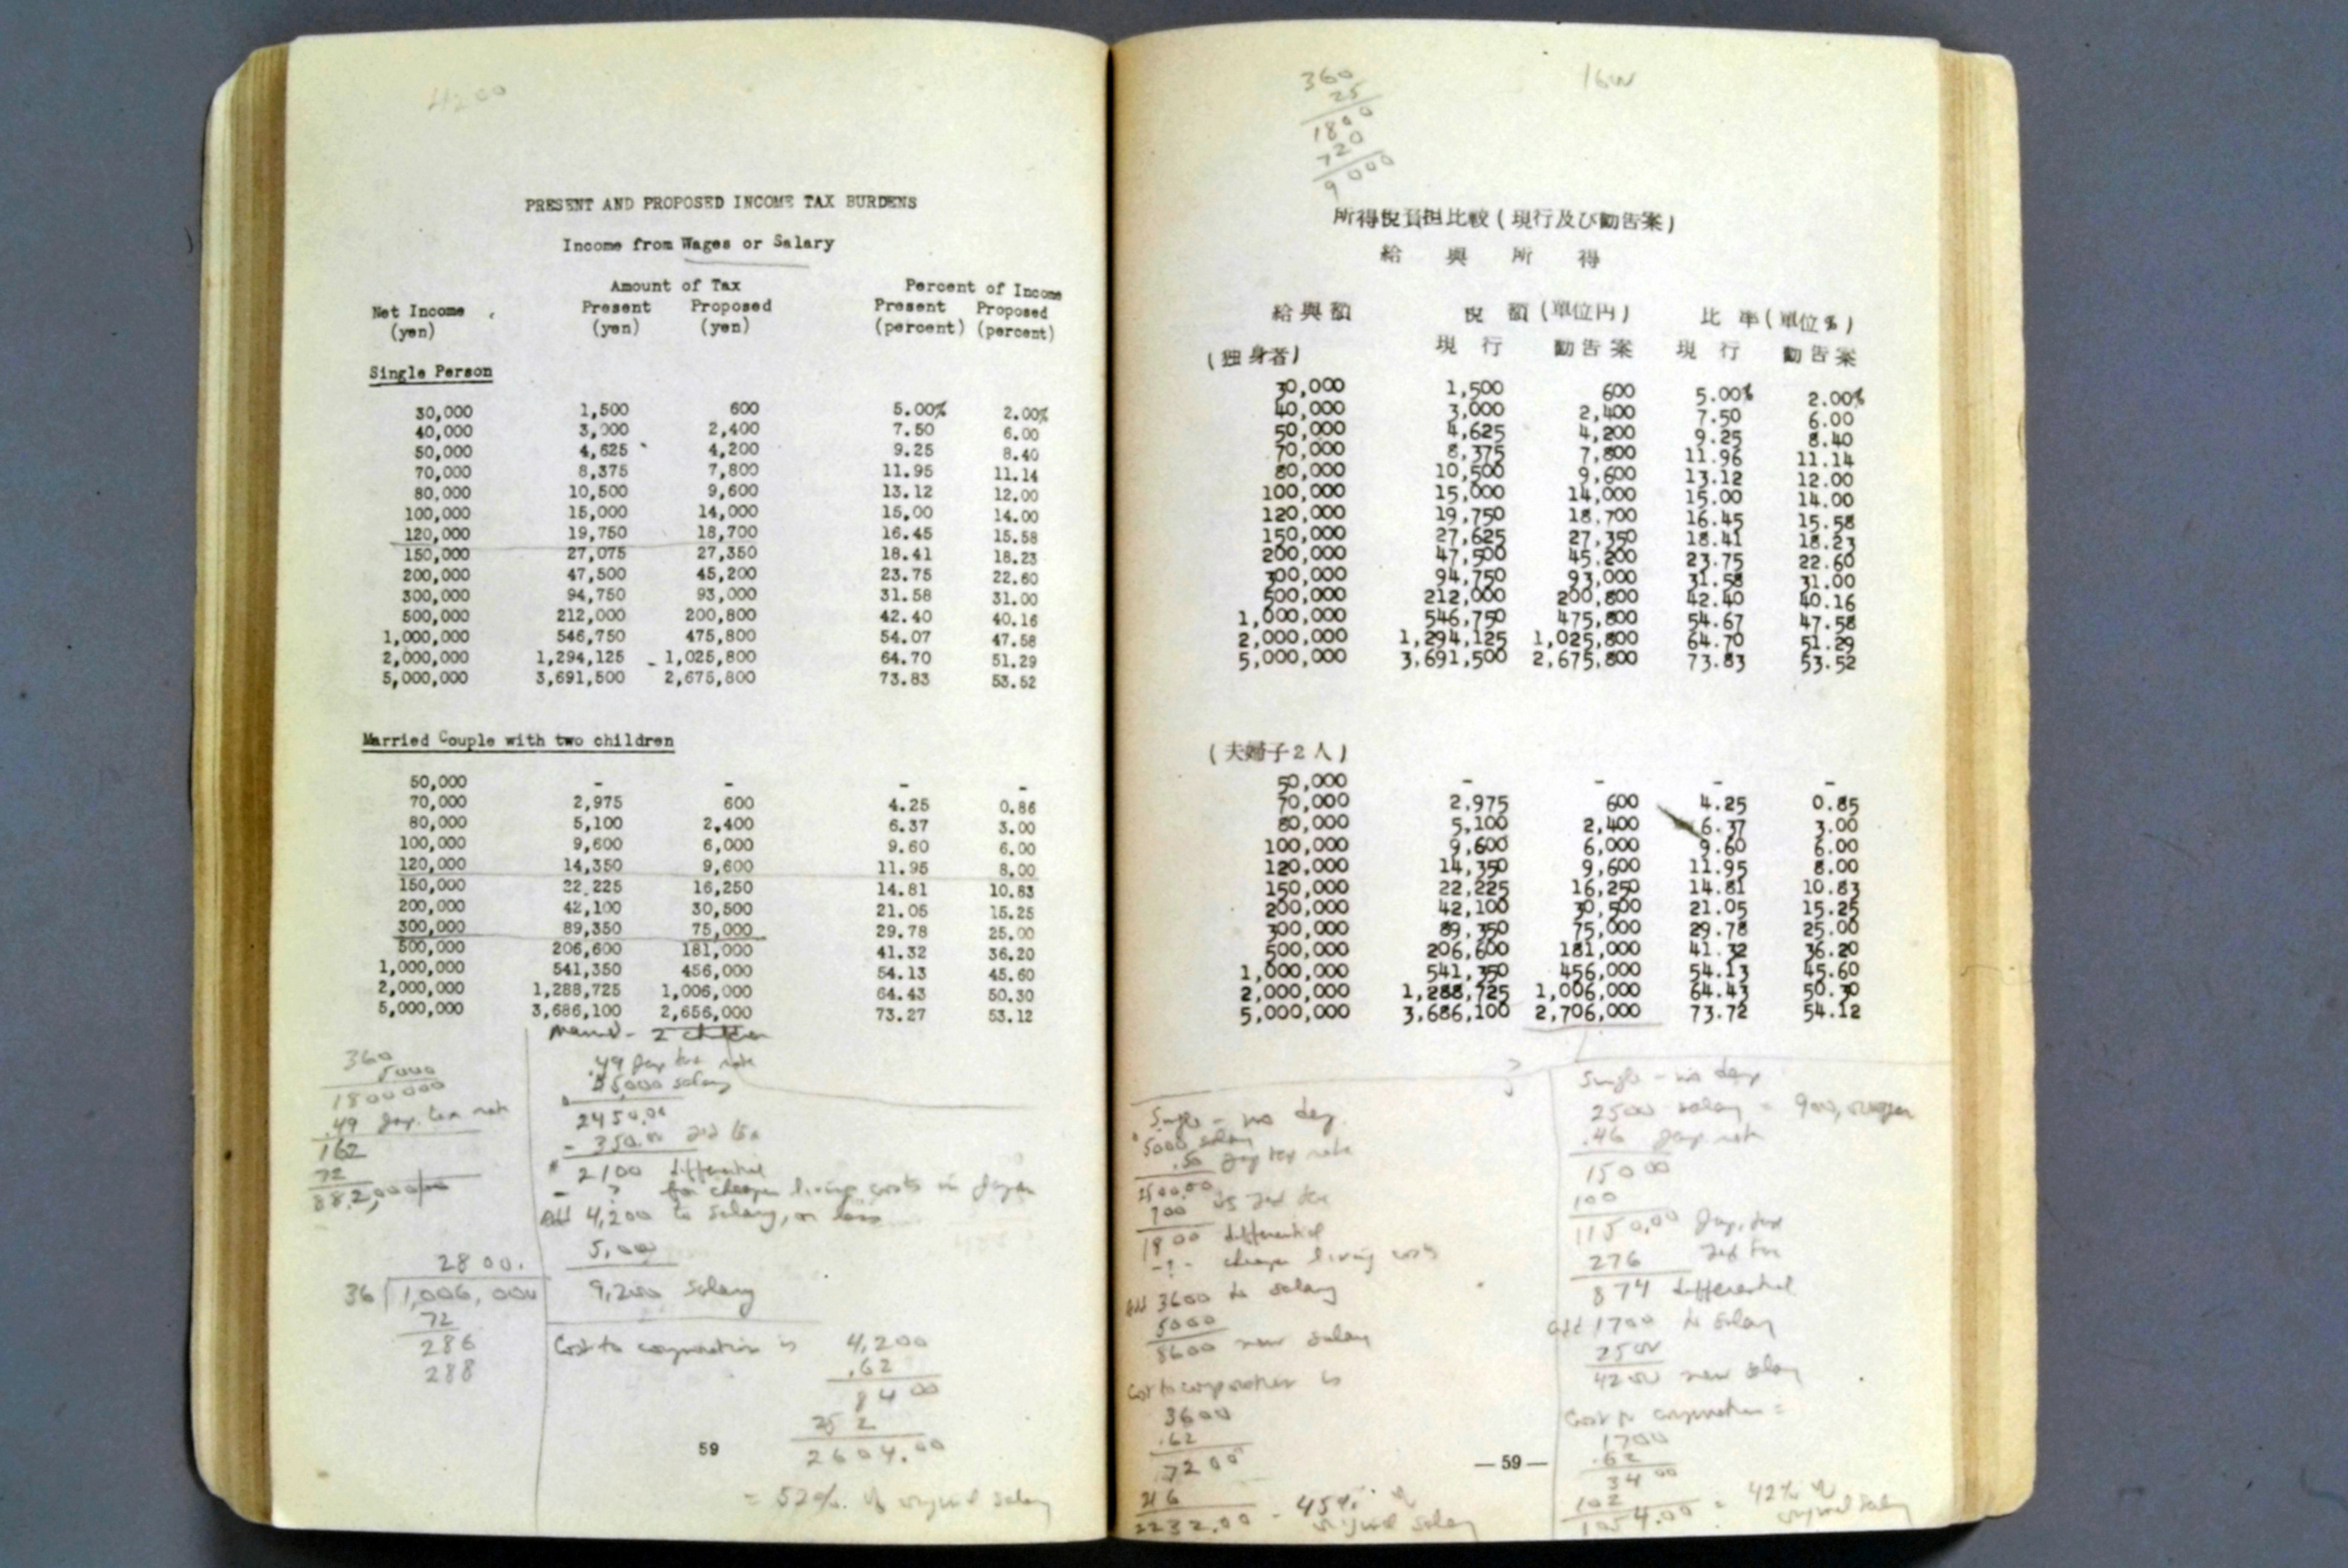 4200
PRESENT AND PROPOSED INCOME TAX BURDENS
Income from Wages or Salary
Amount of Tax Percent of Income
Net Income Present Proposed Present Proposed
(yen) (yen) (yen) (percent) (percent)
Single Person
30,000 1,500 600 5.00% 2.00%
40,000 3,000 2,400 7.50 6.00
50,000 4,625 4,200 9.25 8.40
70,000 8,375 7,800 11.95 11.14
80,000 10,500 9,600 13.12 12.00
100,000 15,000 14,000 15,00 14.00
120,000 19,750 18,700 16.45 15.58
150,000 27,075 27,350 18.41 18.23
200,000 47,500 45,200 23.75 22.60
300,000 94,750 93,000 31.58 31.00
500,000 212,000 200,800 42.40 40.16
1,000,000 546,750 475,800 54.07 47.58
2,000,000 1,294,125 1,025,800 64.70 51.29
5,000,000 3,691,500 2,675,800 73.83 53.52
Married Couple with two children
50,000 - - - -
70,000 2,975 600 4.25 0.86
80,000 5,100 2,400 6.37 3.00
100,000 9,600 6,000 9.60 6.00
120,000 14,350 9,600 11.95 8.00
150,000 22,225 16,250 14.81 10.83
200,000 42,100 30,500 21.05 15.25
300,000 89,350 75,000 29.78 25.00
500,000 206,600 181,000 41.32 36.20
1,000,000 541,350 456,000 54.13 45.60
2,000,000 1,288,725 1,006,000 64.43 50.30
5,000,000 3,686,100 2,656,000 73.27 53.12
360
5000
1800000
.49 Jap. tax rate
162
72
882,000
2800.
36 1,006,000
72
286
288
Married - 2 children
.49 Jap tax rate
$5,000 salary
2450.00
- 350.00 fed tax
$ 2100 differential
- ? for cheaper living costs in Japan
Add 4,200 to salary, or less
5,000
9,200 salary
Cost to corporation is 4,200
.62
84 00
252
2604.00
= 52%. of original salary
59
360
25
1800
720
9000
所得税負担比較(現行及び勧告案)
給與所得
給與額 税額(單位円) 比率(單位%)
(独身者) 現行 勧告案 現行 勧告案
30,000 1,500 600 5.00% 2.00%
40,000 3,000 2,400 7.50 6.00
50,000 4,625 4,200 9.25 8.40
70,000 8,375 7,800 11.96 11.14
80,000 10,500 9,600 13.12 12.00
100,000 15,000 14,000 15.00 14.00
120,000 19,750 18,700 16.45 15.58
150,000 27,625 27,350 18.41 18.23
200,000 47,500 45,200 23.75 22.60
300,000 94,750 93,000 31.58 31.00
500,000 212,000 200,800 42.40 40.16
1,000,000 546,750 475,800 54.67 47.58
2,000,000 1,294,125 1,025,800 64.70 51.29
5,000,000 3,691,500 2,675,800 73.83 53.52
(夫婦子2人)
50,000 - - - -
70,000 2,975 600 4.25 0.85
80,000 5,100 2,400 6.37 3.00
100,000 9,600 6,000 9.60 6.00
120,000 14,350 9,600 11.95 8.00
150,000 22,225 16,250 14.81 10.83
200,000 42,100 30,500 21.05 15.25
300,000 89,350 75,000 29.78 25.00
500,000 206,600 181,000 41.32 36.20
1,000,000 541,350 456,000 54.13 45.60
2,000,000 1,288,725 1,006,000 64.43 50.30
5,000,000 3,686,100 2,706,000 73.72 54.12
?
Single - no dep.
5000 salary
.50 Jap tax rate
2500.00
700 US fed tax
1800 differential
- ? - cheaper living costs
Add 3600 to salary
5000
8600 new salary
Cost to corporation is
3600
.62
7200
216
2232.00 - 45% of
original salary
Single - no dep
2500 salary = 900,000 yen
.46 Jap. rate
15000
100
1150.00 Jap. tax
276 fed tax
874 differential
add 1700 to salary
2500
4200 new salary
Cost to corporation =
1700
.62
34 00
102
1054.00 = 42% of
original salary
— 59 —